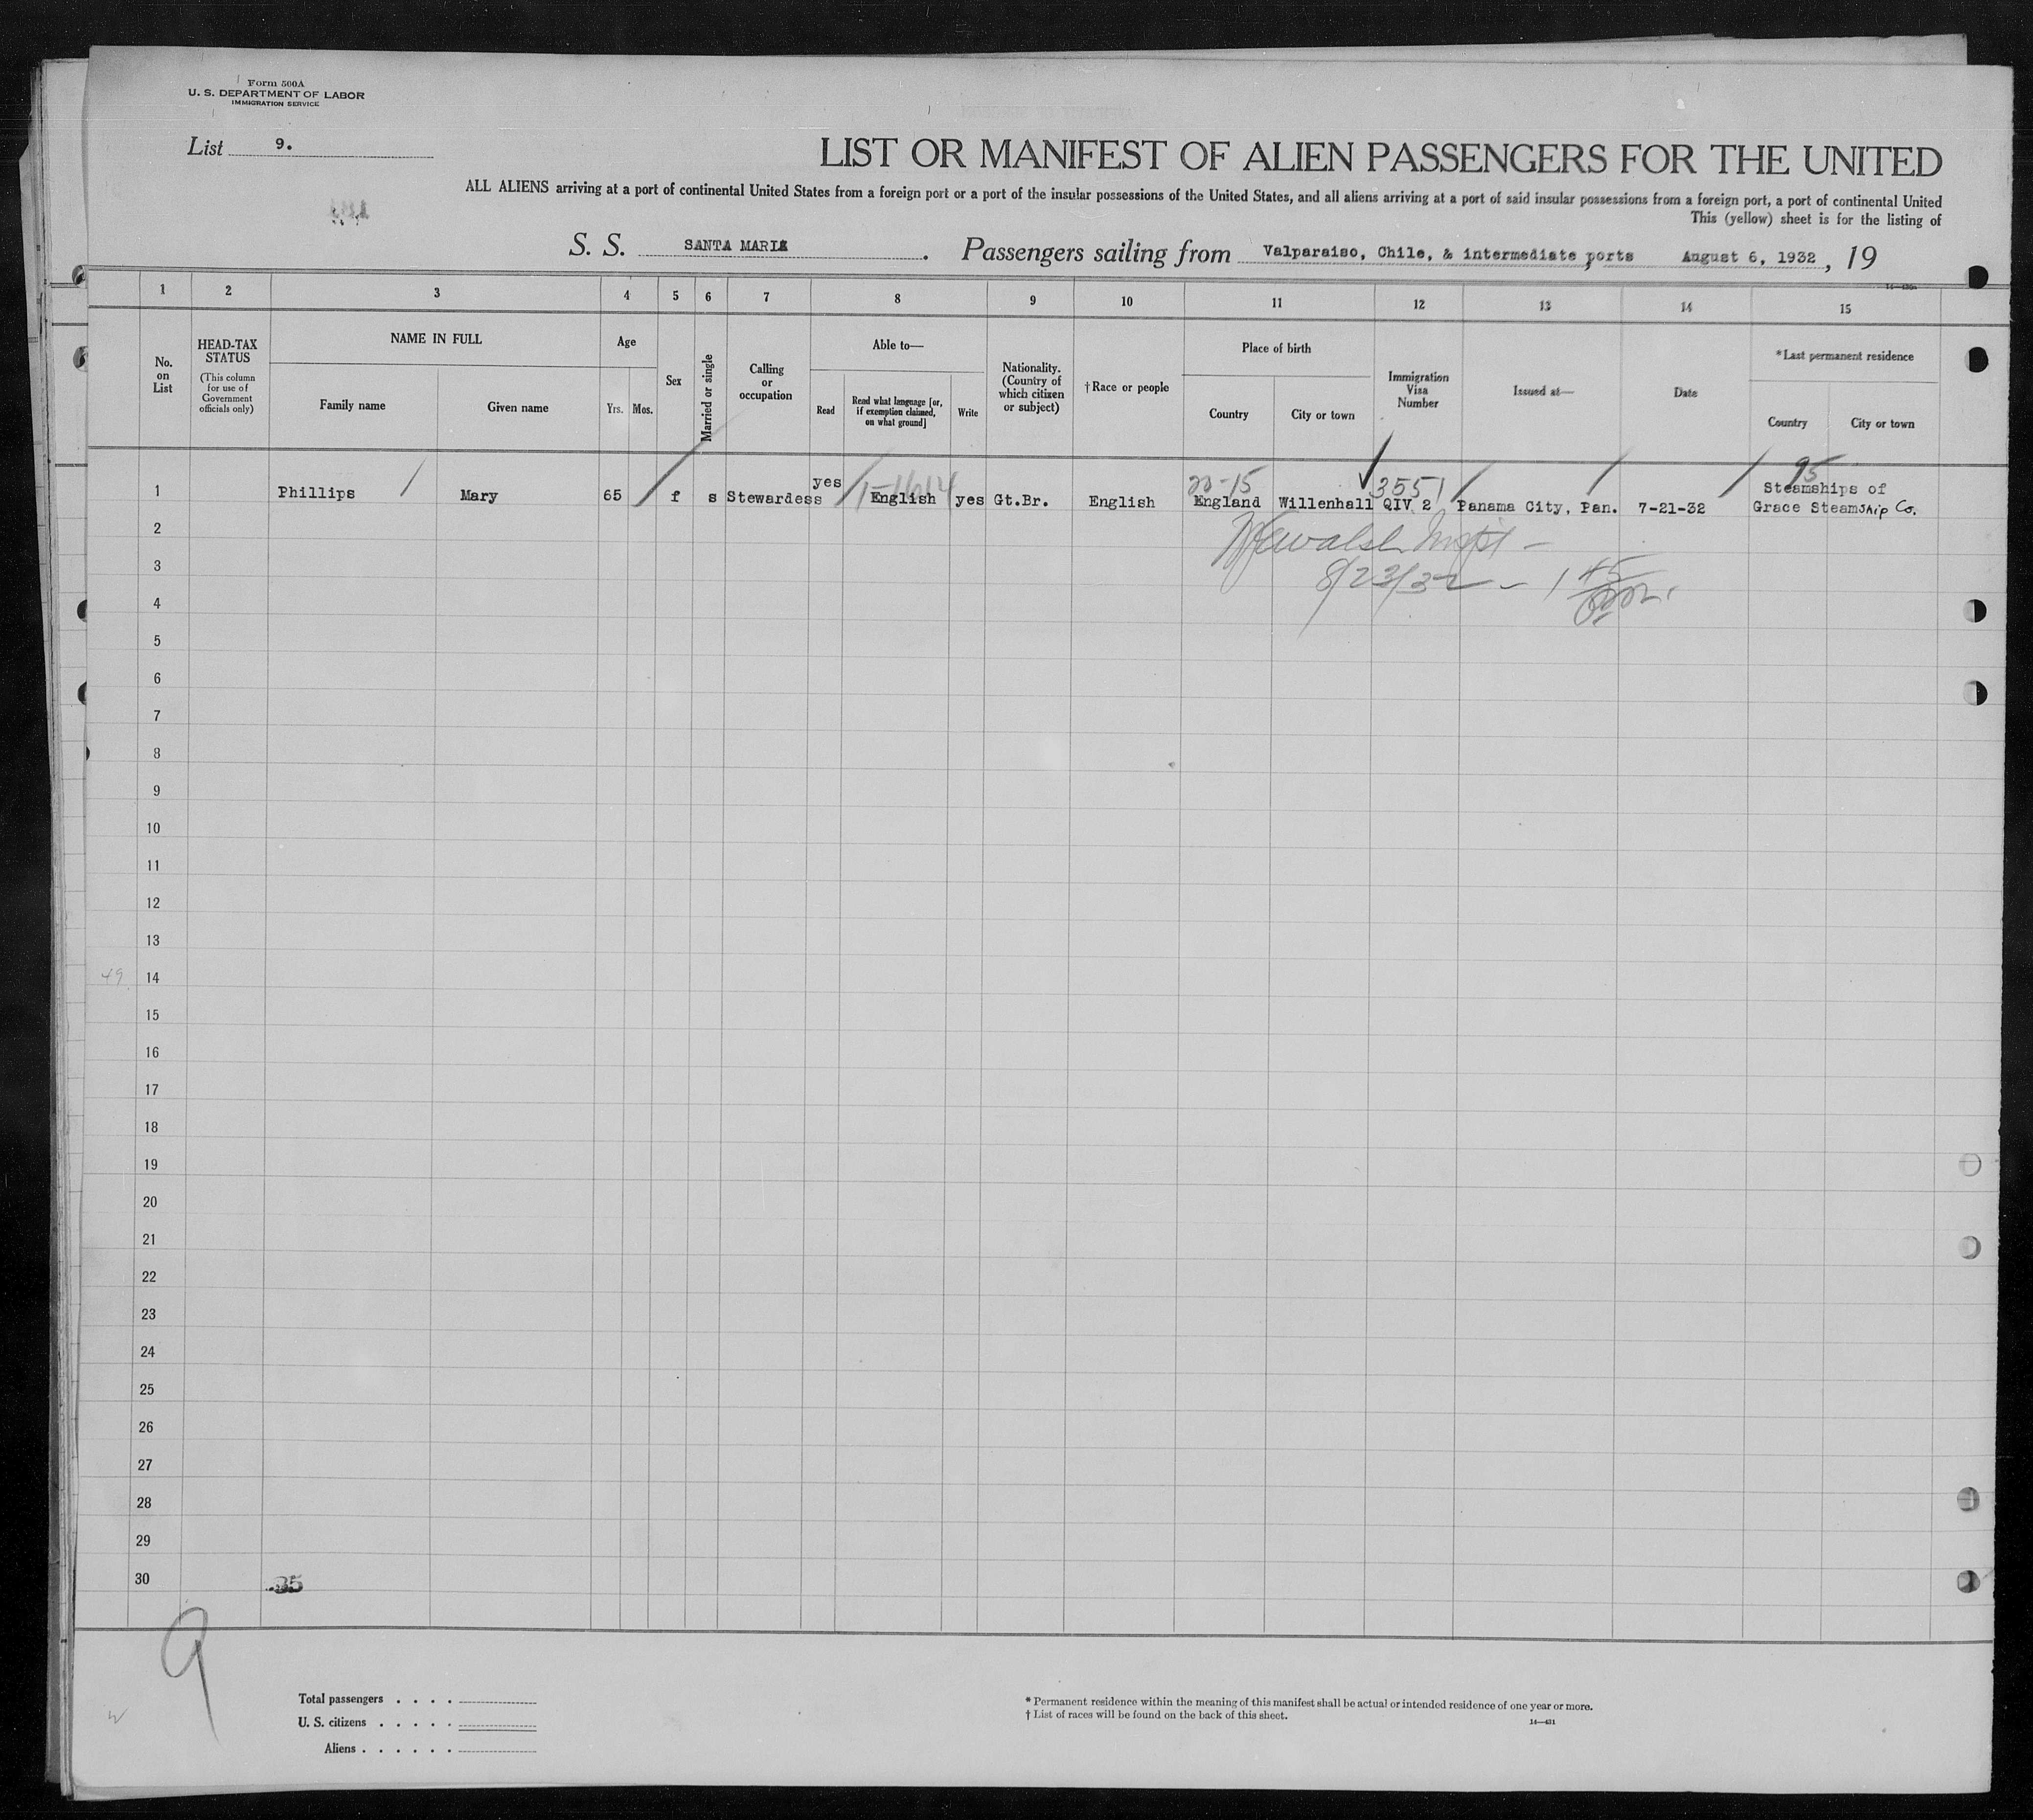 Form 500A
U. S. DEPARTMENT OF LABOR
IMMIGRATION SERVICE
List 9.
LIST OR MANIFEST OF ALIEN PASSENGERS FOR THE UNITED
ALL ALIENS arriving at a port of continental United States from a foreign port or a port of the insular possessions of the United States, and all aliens arriving at a port of said insular possessions from a foreign port, a port of continental United
This (yellow) sheet is for the listing of
S. S. SANTA MARIA. Passengers sailing from Valparaiso, Chile, & intermediate ports August 6, 1932, 19
1 2 3 4 5 6 7 8 9 10 11 12 13 14 15
No. on List
HEAD-TAX STATUS
(This column for use of Government officials only)
NAME IN FULL
Family name
Given name
Age
Yrs. Mos.
Sex
Married or single
Calling or occupation
Able to—
Read
Read what language [or, if exemption claimed, on what ground]
Write
Nationality. (Country of which citizen or subject)
†Race or people
Place of birth
Country
City or town
Immigration Visa Number
Issued at—
Date
*Last permanent residence
Country
City or town
95
yes 20-15 3551 Steamships of
1 Phillips Mary 65 f s Stewardess English yes Gt.Br. English England Willenhall QIV 2 Panama City, Pan. 7-21-32 Grace Steamship Co.
2
3
8/23/32 – 1 45
4
5
6
7
8
9
10
11
12
13
49 14
15
16
17
18
19
20
21
22
23
24
25
26
27
28
29
30
35
9
Total passengers . . . .
U. S. citizens . . . . .
Aliens . . . . . .
* Permanent residence within the meaning of this manifest shall be actual or intended residence of one year or more.
† List of races will be found on the back of this sheet.
14—431